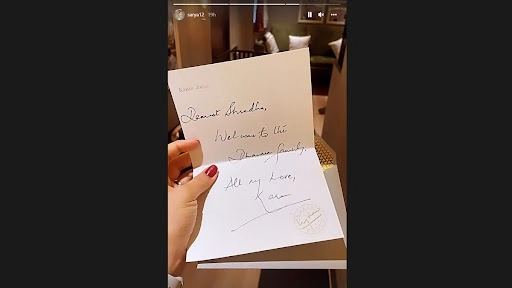 sanyu12 19h
Dearest Shradha,
Welcome to the
Dharma family,
All my Love,
Karan